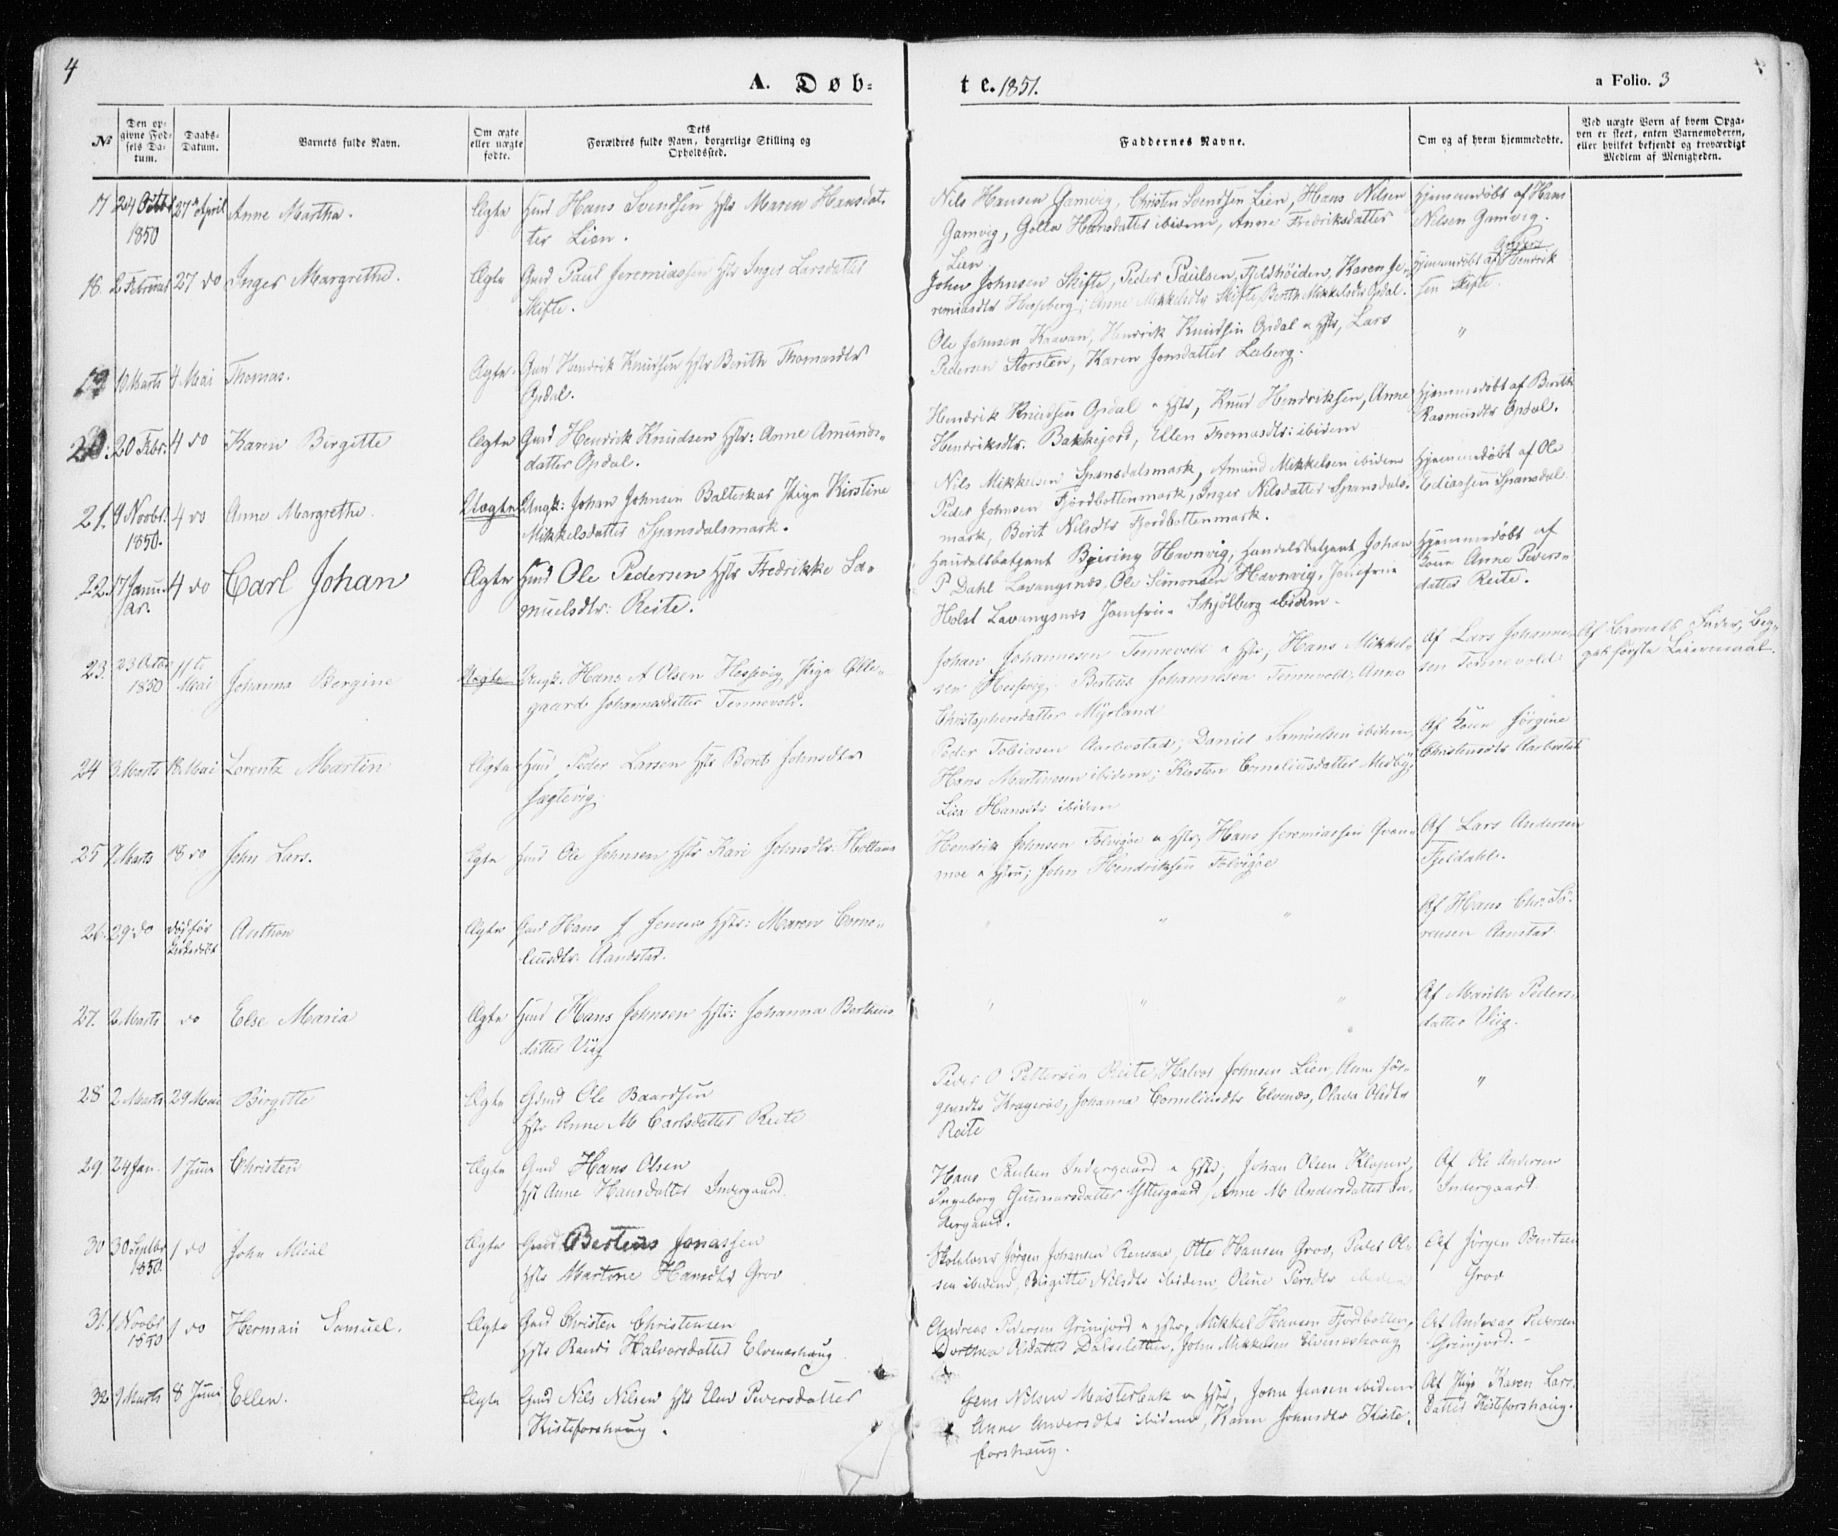 4
A. Døb-
te. 1851.
a Folio. 3
No
Den op-
givne Fød-
sels Da-
tum.
Daabs-
Datum.
Barnets fulde Navn.
Om ægte
eller uægte
fødte.
Dets
Forældres fulde Navn, borgerlige Stilling og
Opholdssted.
Faddernes Navne.
Om og af hvem hjemmedøbte.
Ved uægte Børn af hvem Opga-
ven er skeet, enten Barnemoderen,
eller hvilket bekjendt og troværdigt
Medlem af Menigheden.
17 24 Octbr 27de April Anne Martha. Ægte Gmd Hans Svendsen Hstr Maren Hansdat-
1850 ter Lien.
Nils Hansen Gamvig, Christen Svendsen Lien, Hans Nilsen
Gamvig, Golla Hansdatter ibidem, Anne Fredriksdatter
Lien.
Hjemmedøbt af Hans
Nilsen Gamvig.
18. 2 Februar 27 do Inger Margrethe. Ægte Gmd Paul Jeremiassen Hstr Inger Larsdatter
Skifte.
John Johnsen Skifte, Peder Paulsen Fjeldhøiden, Karen Je-
remiasdtr Hesseberg, Anne Mikkelsdtr Skifte, Berith Mikkelsdtr Opdal.
Hjemmedøbt af Hendrik
sen Skifte.
19 10 Marts 4 Mai Thomas. Ægte Gmd Hendrik Knudsen Hstr Berith Thomasdtr
Opdal.
Ole Johnsen Kraavan, Hendrik Knudsen Opdal & Hstr, Lars
Pedersen Storsten, Karen Jonsdatter Leiberg.
"
20: 20 Febr: 4 do Karen Birgitte Ægte Gmd Hendrick Knudsen Hstr: Anne Amunds-
datter Opdal.
Hendrik Knudsen Opdal & Hstr, Knud Hendriksen, Anne
Hendriksdtr. Bakkejord, Ellen Thomasdtr: ibidem
Hjemmedøbt af Berith
Rasmusdtr Opdal.
21. 4 Novbr: 4 do Anne Margrethe. Uægte Ungk: Johan Johnsen Balteskar Pige Kirstine
1850. Mikkelsdatter Spansdalsmark.
Nils Mikkelsen Spansdalsmark, Amund Mikkelsen ibidem
Peder Johnsen Fjordbottenmark, Inger Nilsdatter Spansdals-
mark, Berit Nilsdtr Fjordbottenmark.
Hjemmedøbt af Ole
Ediassen Spansdal
22. 17 Janu- 4 do Carl Johan Ægte Gmd Ole Pedersen Hstr Fredrikke Sa-
ar. muelsdtr: Reite.
Handelsbetjent Beiring Havnvig, Handelsbetjent Johan
P Dahl Lavangsnæs, Ole Simonsen Havnvig, Jomfrue
Holst Lavangsnæs Jomfrue Schjølberg ibidem.
Hjemmedøbt af
Kone Anne Peders-
datter Reite.
23. 23 Octbr 11te Johanna Bergine Uægte Ungk. Hans A Olsen Hesjevig Pige Olle-
1850 Mai gaard Johannesdatter Tennevold.
Johan Johannesen Tennevold & Hstr, Hans Mikkel-
sen Hesjevig, Berteus Johannesen Tennevold, Anne
Christophersdatter Myrland
Af Lars Johanne-
sen Tennevold
Af Barnets Fader, Beg-
ges første Leiermaal.
24 3 Marts 18 Mai Lorentz Martin Ægte Gmd Peder Larsen Hstr Berit Johnsdtr
Jægtevig
Peder Tobiasen Aarbostad, Daniel Samuelsen ibidem,
Hans Martinsen ibidem; Kirsten Corneliusdatter Medby;
Lisa Hansdtr ibidem
Af Koen Jørgine
Christensdtr Aarbostad
25 7 Marts 18 do John Lars. Ægte Gmd Ole Johnsen Hstr Kari Johnsdtr: Høttaas
Hendrik Johnsen Følvigøe & Hstr, Hans Jeremiassen Gran-
moe & Hstru; John Hendriksen Følvigøe
Af Lars Andersen
Fjeldahl.
26. 29 do død før Anthon Ægte Gmd Hans J Jensen Hstr: Maren Corne-
liusdtr. Aanestad.
" " "
Af Hans Chr: Sö-
rensen Aanstad
27. 2 Marts do Else Maria Ægte Gmd Hans Johnsen Hstr: Johanna Bertheus
datter Viig
" " "
Af Marith Peders-
datter Viig.
28 2 Marts 29 Mai Birgitte Ægte Gdmd Ole Baardsen
Hstr Anne M Carlsdatter Reite
Peder O Pettersen Reite, Halvor Johnsen Lien, Anne Jør-
gensdtr Kragerøe, Johanna Corneliusdtr Elvenæs, Olava Olsdtr
Reite
"
29. 24 Jan. 1 Juni Christen Ægte Gmd Hans Olsen
Hst Anne Hansdatter Indergaard.
Hans Paulsen Indergaard & Hstr, Johan Olsen Kloven,
Ingeborg Gunnarsdatter Yttergaard, Anne M Andersdatter In-
dergaard.
Af Ole Andersen
Indergaard.
30 30 Septbr 1 do John Mical Ægte Gmd Berteus Jonassen
1850. Hstr Martine Hansdtr Grov
Skolelærer Jørgen Johansen Rensaae, Otte Hansen Grov, Peder Ol-
sen ibidem, Birgitte Nilsdtr ibidem, Oline Persdtr ibidem
Af Jørgen Bentsen
Grov
31. 1 Novbr 1 do Herman Samuel. Ægte Gmd Christen Christensen
1850 Hstr Randi Halvorsdatter Elveneshaug
Andreas Pedersen Grønjord & Hstr, Mikkel Hansen Fjordbotten,
Dorthea Olsdatter Dalsletten, John Mikkelsen Elveneshaug
Af Andreas Pedersen
Grønjord.
32 9 Marts 8 Juni Ellen. Ægte Gmd Nils Nilsen Hstr Elen Pedersdatter
Kisteforshaug.
Jens Nilsen Mosterbak & Hstr, John Jensen ibidem
Anne Andersdtr ibidem, Karen Johnsdtr Kiste-
forshaug.
Af Pige Karen Lars-
Datter Kisteforshaug.